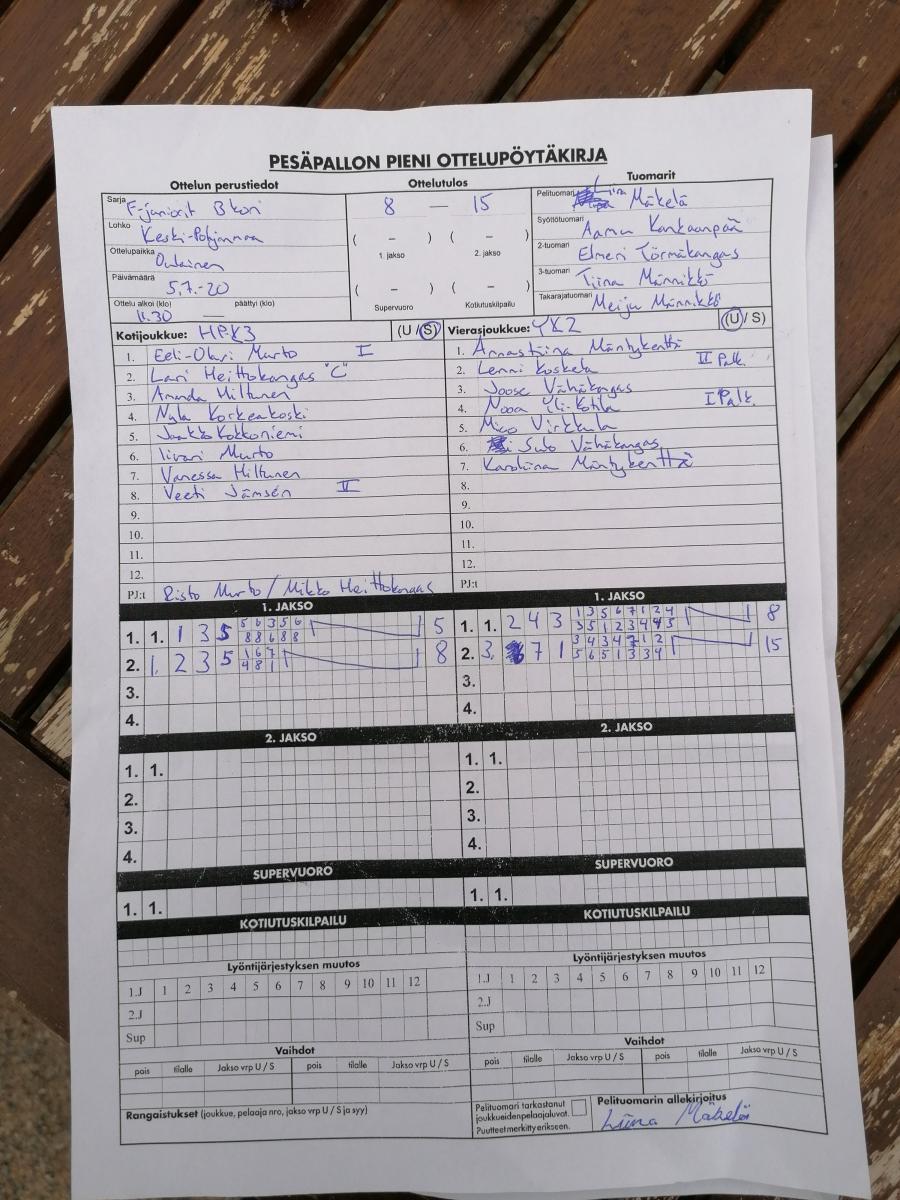 PESÄPALLON PIENI OTTELUPÖYTÄKIRJA
Ottelun perustiedot
Sarja F-juniorit B
Lohko Keski-Pohjanmaa
Ottelupaikka Oulainen
Päivämäärä 5.7.-20
Ottelu alkoi (klo) päättyi (klo)
11.30 —
Ottelutulos
8 — 15
( – ) ( – )
1. jakso 2. jakso
( – ) ( – )
Supervuoro Kotiutuskilpailu
Tuomarit
Pelituomari Liina Mäkelä
Syöttötuomari Aamu Kankaanpää
2-tuomari Elmeri Törmäkangas
3-tuomari Tiina Männikkö
Takarajatuomari Meiju Männikkö
Kotijoukkue: HPK3 (U / S)
1. Eeli-Olavi Murto I
2. Lari Heittokangas "C"
3. Amanda Hiltunen
4. Nyla Korkeakoski
5. Jaakko Kokkoniemi
6. Iivari Murto
7. Vanessa Hiltunen
8. Veeti Jämsén II
9.
10.
11.
12.
PJ:t Risto Murto / Mikko Heittokangas
Vierasjoukkue: YK2 (U / S)
1. Annastiina Mäntykenttä
2. Lenni Koskela II Palk.
3. Joose Vähäkangas
4. Nooa Yli-Kotila I Palk.
5. Mico Virkkula
6. Sulo Vähäkangas
7. Karoliina Mäntykenttä
8.
9.
10.
11.
12.
PJ:t
1. JAKSO
1. 1. 1 3 5 5 6 3 5 6 5
8 8 6 8 8
2. 1. 2 3 5 1 6 7 8
4 8 1
3.
4.
1. JAKSO
1. 1. 2 4 3 1 3 5 6 7 1 2 4 8
3 5 1 2 3 4 4 5
2. 3. 7 1 3 4 3 4 7 1 2 15
5 6 5 1 3 3 4
3.
4.
2. JAKSO
1. 1.
2.
3.
4.
2. JAKSO
1. 1.
2.
3.
4.
SUPERVUORO
1. 1.
SUPERVUORO
1. 1.
KOTIUTUSKILPAILU
KOTIUTUSKILPAILU
Lyöntijärjestyksen muutos
1.J 1 2 3 4 5 6 7 8 9 10 11 12
2.J
Sup
Lyöntijärjestyksen muutos
1.J 1 2 3 4 5 6 7 8 9 10 11 12
2.J
Sup
Vaihdot
pois tilalle Jakso vrp U / S pois tilalle Jakso vrp U / S
Vaihdot
pois tilalle Jakso vrp U / S pois tilalle Jakso vrp U / S
Rangaistukset (joukkue, pelaaja nro, jakso vrp U / S ja syy)
Pelituomari tarkastanut
joukkueidenpelaajaluvat.
Puutteetmerkitty erikseen.
Pelituomarin allekirjoitus
Liina Mäkelä